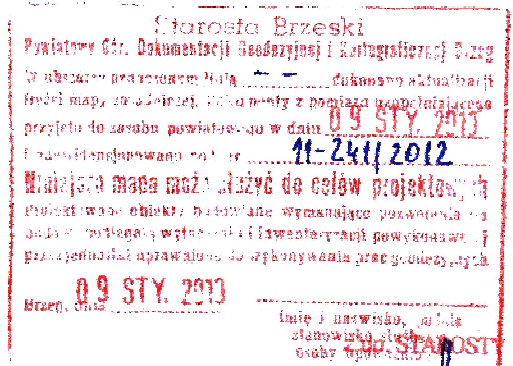 Starosta Brzeski
Powiatowy Ośr. Dokumentacji Geodezyjnej i Kartograficznej Brzeg
W obszarze oznaczonym linią – – dokonano aktualizacji
treści mapy zasadniczej. Dokumenty z pomiaru uzupełniającego
przyjęto do zasobu powiatowego w dniu 09 STY. 2013
i zaewidencjonowano pod nr 11-241/2012
Niniejsza mapa może służyć do celów projektowych
Projektowane obiekty budowlane wymagające pozwolenia na
podlegają wytyczeniu i inwentaryzacji powykonawczej
przez jednostki uprawnione do wykonywania prac geodezyjnych
Brzeg, dnia 09 STY. 2013
imię i nazwisko,
stanowisko
osoby
z up. STAROSTY